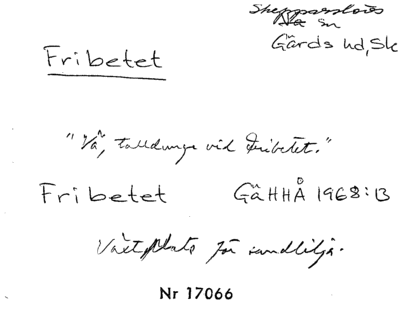 Shepparslövs
Vä sn
Gärds hd, Sk
Fribetet
"Vä, talldunge vid Fribetet."
Fribetet GäHHÅ 1968:13
Växtplats för sandlilja.
Nr 17066